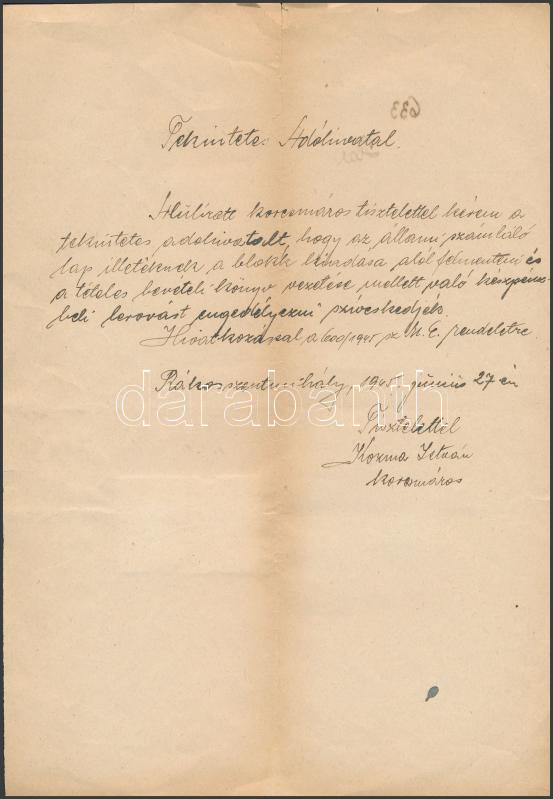 633
Tekintetes Adóhivatal.
Alulírott korcsmáros tisztelettel kérem a
tekintetes adóhivatalt, hogy az állami számláló
lap illetéknek a blokk kiadása alól felmenteni és
a tételes beveteli könyv vezetése mellett való készpénz
beli lerovást engedélyezni sziveskedjék.
Hivatkozással a 600/1945 sz M. E. rendeletre
Rákosszentmihály, 1945 junius 27 én
Tisztelettel
Kozma István
korcsmáros
darabanth